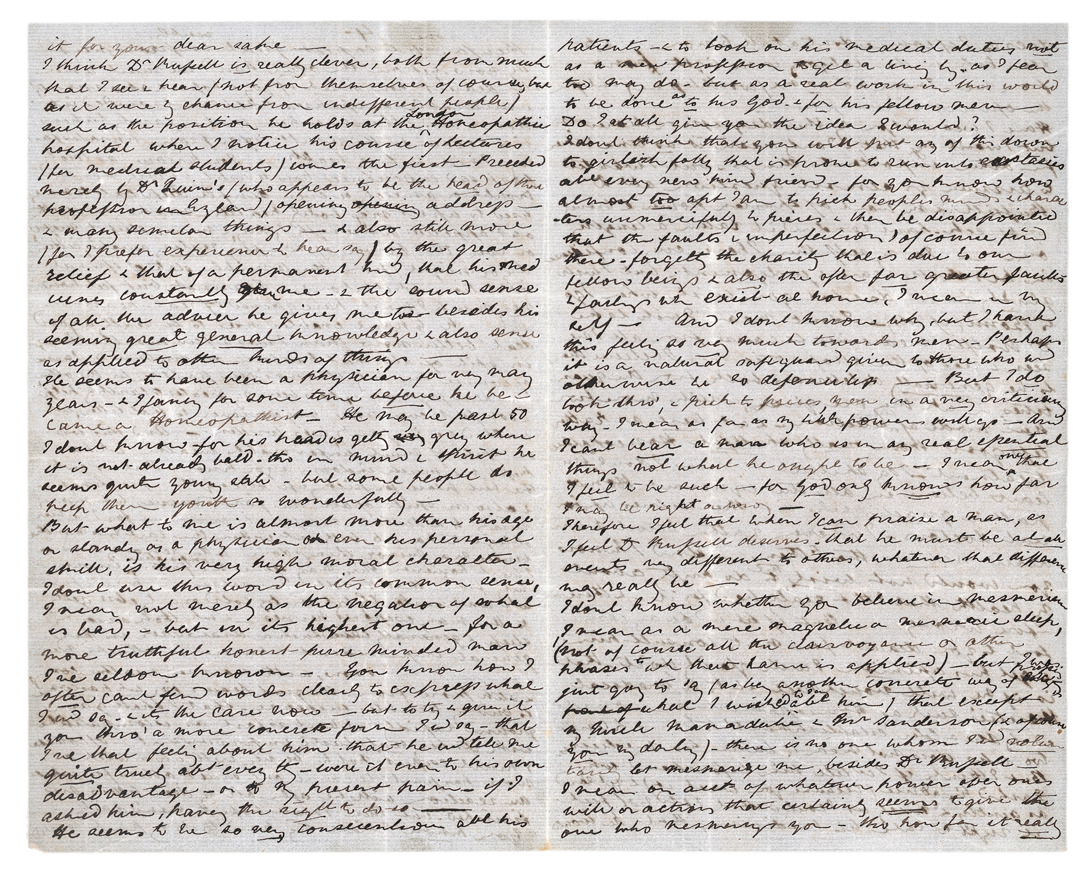 it for your dear sake —
I think Dr Russell is really clever, both from much
that I see & hear (not from themselves of course, but
as it were by chance from indifferent people)
such as the position he holds at the London Homeopathic
hospital where I notice his course of lectures
(for medical students) comes the first — Preceded
merely by Dr Quin's (who appears to be the head of their
profession in England) opening address —
& many similar things — & also still more
(for I prefer experience to hear say) by the great
relief & that of a permanent kind, that his med
cines constantly give me — & the sound sense
of all the advice he gives me too — besides his
seeming great general knowledge & also sense
as applied to other kinds of things —
He seems to have been a physician for very many
years — & I fancy for some time before he be-
came a Homeopathist — He may be past 50
I dont know — for his head is gettg very grey where
it is not already bald — tho in mind & spirit he
seems quite young still — but some people do
keep their youth so wonderfully —
But what to me is almost more than his age
or standg as a physician or even his personal
skill, is his very high moral character —
I dont use this word in its common sense,
I mean not merely as the negation of what
is bad, — but in its highest one — for a
more truthful honest pure minded man
I've seldom known — You know how I
often cant find words clearly to express what
I wd say — & its the case now — but to try & give it
you thro' a more concrete form I'd say — that
I've that feeling about him that he wd tell me
quite truly abt every thg — were it even to his own
disadvantage — or to my present pain — if I
asked him, having the right to do so —
He seems to be so very conscientious abt his
patients — & to look on his medical duties not
as a mere profession to get a living by, as I fear
too many do — but as a real work in this world
to be done as to his God — & for his fellow men —
Do I at all give you the idea I would?
I dont think that you will put any of this down
to girlish folly that is prone to run into ecstasies
abt every new kind friend — for you know how
almost too apt I am to pick peoples minds & charac
ters unmercifully to pieces & then be disappointed
that the faults (& imperfections) I of course find
there — forgettg the charity that is due to our
fellow beings & also the often far greater faults
& failings wh exist at home, I mean in my
self — And I dont know why, but I have
this feelg so very much towards men — Perhaps
it is a natural safeguard given to those who wd
otherwise be so defenceless — But I do
look thro', & pick to pieces men in a very criticising
way — I mean as far as my little powers will go — And
I cant bear a man who is in any real essential
things not what he ought to be — I mean only that
I feel to be such — for God only knows how far
I may be right or wrong —
Therefore I feel that when I can praise a man, as
I feel Dr Russell deserves — that he must be at all
events very different to others, whatever that difference
may really be —
I dont know whether you believe in mesmerism
I mean as a mere magnetic or mesmeric sleep,
(not of course all the clairvoyance or other
phases to wh that name is applied) — but I was
just gog to say (as beg another concrete way of
what I wished to say abt him) that except
my Uncle & Mr Sanderson
— there is no one whom I'd
let mesmerize me, besides Dr Russell —
I mean on acct of whatever power over ones
will or action that certainly seems to give the
one who mesmerizes you — tho how far it really